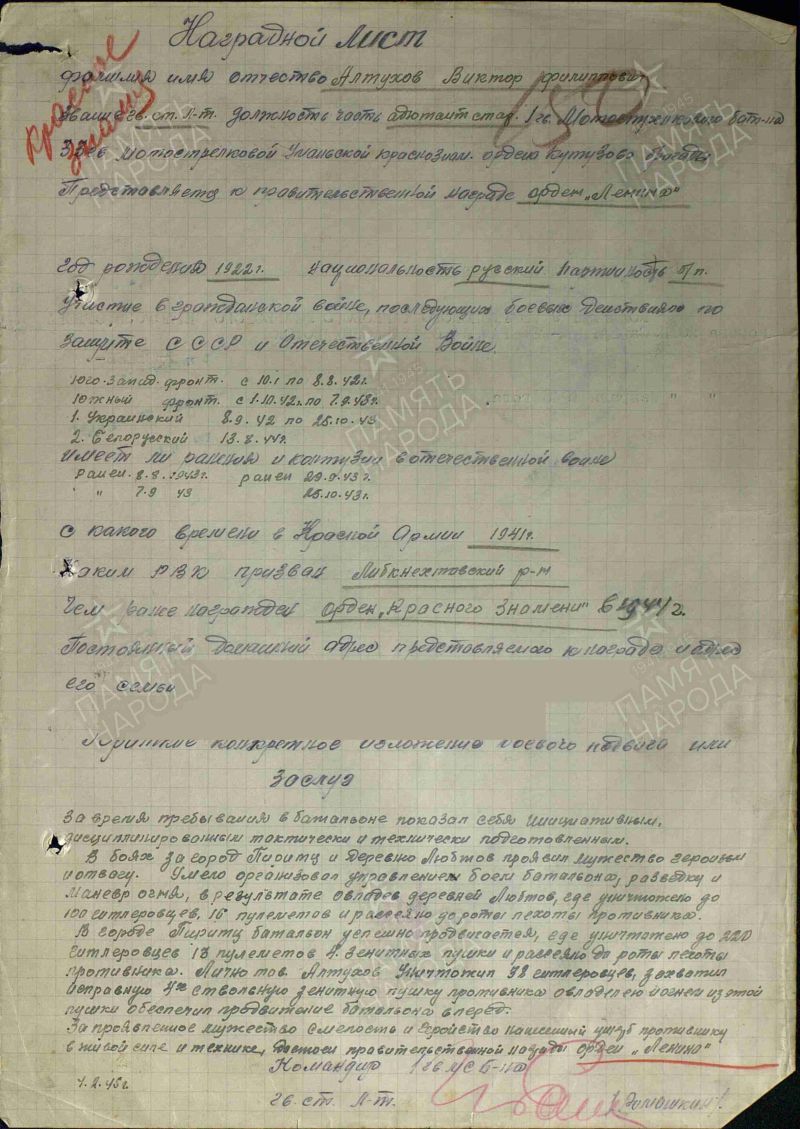 Наградной лист
Фамилия имя отчество Алтухов Виктор Филиппович
Звание гв. ст. л-т. должность часть адютант стар. 1 гв. Мотострелкового бат-на
гв мотострелковой Уманьской краснознам. ордена Кутузова бригады
Представляется к правительственной награде орден „Ленина"
Год рождения 1922 г. национальность русский партийность б/п.
Участие в гражданской войне, последующих боевых действиях по
защите СССР и Отечественной Войне
Юго-Запад. фронт. с 10.1 по 8.8.42 г.
Южный фронт. с 1.10.42 г. по 7.9.43 г.
1. Украинский 8.9.42 по 25.10.43
2. Белорусский 13.8.44 г.
Имеет ли ранения и контузии в отечественной войне
ранен. 8.8.1943 г. ранен 29.9.43 г.
" " 7.9 43 25.10.43 г.
С какого времени в Красной Армии 1941 г.
Каким РВК призван Либкнехтовский р-н
Чем ранее награжден орден „Красного Знамени" в 1944 г.
Постоянный домашний адрес представляемого к награде и адрес
его семьи
Краткие конкретное изложение боевого подвига или
заслуг
За время пребывания в батальоне показал себя инициативным,
дисциплинированным тактически и технически подготовленным.
В боях за город Пиритц и деревню Любтов проявил мужество героизм
и отвагу. Умело организовал управлением боем батальона, разведку и
маневр огня, в результате овладев деревней Любтов, где уничтожено до
100 гитлеровцев, 16 пулеметов и рассеяно до роты пехоты противника.
В городе Пиритц батальон успешно продвигается, где уничтожено до 220
гитлеровцев 18 пулеметов 4. зенитных пушки и рассеяно до роты пехоты
противника. Лично тов. Алтухов уничтожил 32 гитлеровцев, захватил
исправную 4х ствольную зенитную пушку противника овладел ею и огнем из этой
пушки обеспечил продвижение батальона вперед.
За проявленное мужество смелость и геройство нанесенный ущерб противнику
в живой силе и технике, достоен правительственной награды орден „Ленина"
Командир 1 гв мс б-на
4.2.45 г.
гв. ст. л-т.
Красное
знамя
ПАМЯТЬ НАРОДА